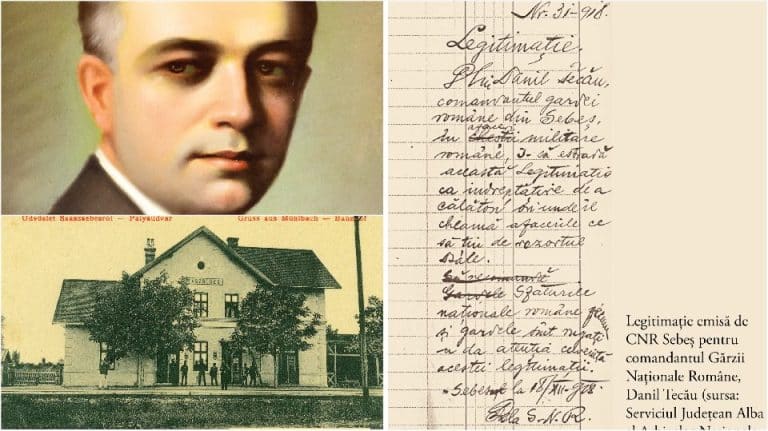 Üdvözlet Szászsebesről — Pályaudvar
Gruss aus Mühlbach — Bahnhof
Nr. 31-918.
Legitimație.
Dlui Dănil Tecău,
comandantul gardei
române din Sebeș,
în afaceri militare
române, i-să estradă
această Legitimație
ca indreptațire de a
călători ori unde îl
cheamă afacerile ce
să țin de rezortul
Săle.
Să recomandă
Gardele Sfaturile
naționale române
și gărzile sunt rugați
a da atenția cuvenită
acestei legitimații.
Sebeș la 18/XII-908.
Dela S.N.R.
Legitimație emisă de
CNR Sebeș pentru
comandantul Gărzii
Naționale Române,
Danil Tecău (sursa:
Serviciul Județean Alba
al Arhivelor Naționale